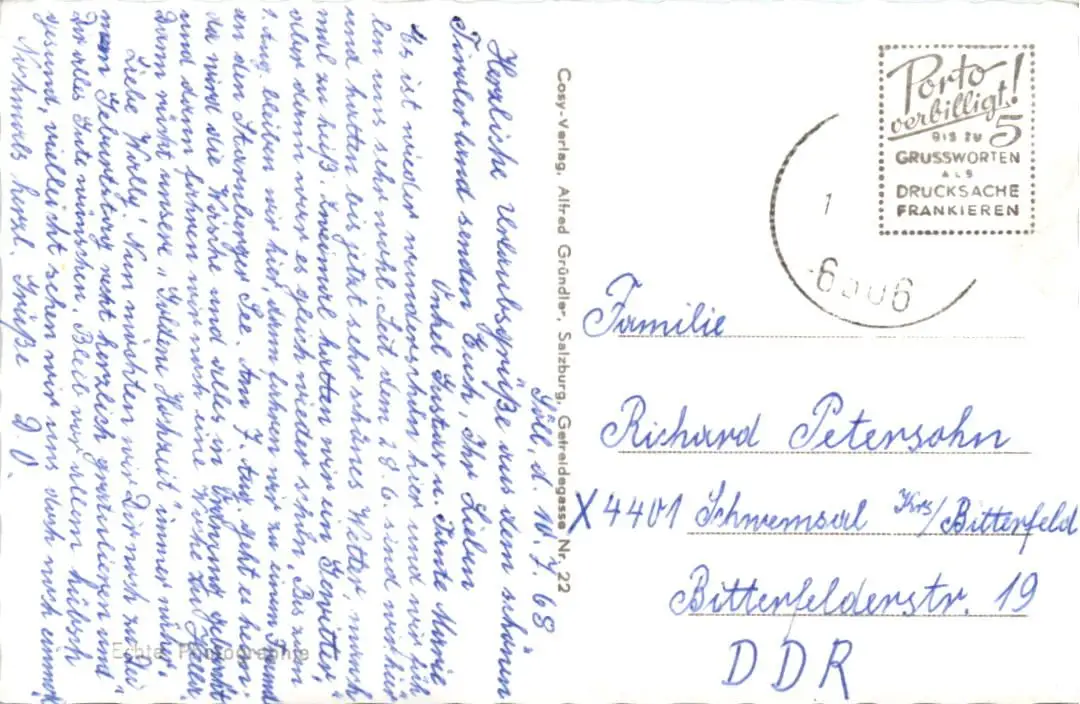 Söll, d. 10.7.68
Herzliche Urlaubsgrüße aus dem schönen
Tirolerland senden Euch, Ihr Lieben
Onkel Gustav u. Tante Marie
Es ist wieder wunderschön hier und wir füh-
len uns sehr wohl. Seit dem 28.6. sind wir hier
und hatten bis jetzt sehr schönes Wetter, manch-
mal zu heiß. Einmal hatten wir ein Gewitter,
aber dann war es gleich wieder schön. Bis zum
1. Aug. bleiben wir hier, dann fahren wir zu einem Freund
an den Starnberger See. Am 7. Aug. geht es heim
da wird die Wäsche und alles in Ordnung gebracht
und dann fahren wir noch eine Woche zu
Dann rückt unsere "Goldene Hochzeit" immer näher.
Liebe Wally! Nun möchten wir Dir noch zu Dei-
nem Geburtstag recht herzlich gratulieren und
Dir alles Gute wünschen. Bleib vor allem hübsch
gesund, vielleicht sehen wir uns doch noch einmal
Nochmals herzl. Grüße D. O.
Echte Photographie
Cosy-Verlag, Alfred Gründler, Salzburg, Getreidegasse Nr. 22
Porto
verbilligt!
BIS ZU 5
GRUSSWORTEN
ALS
DRUCKSACHE
FRANKIEREN
1
6306
Familie
Richard Petersohn
X 4401 Schwemsal Krs/Bitterfeld
Bitterfelderstr. 19
DDR